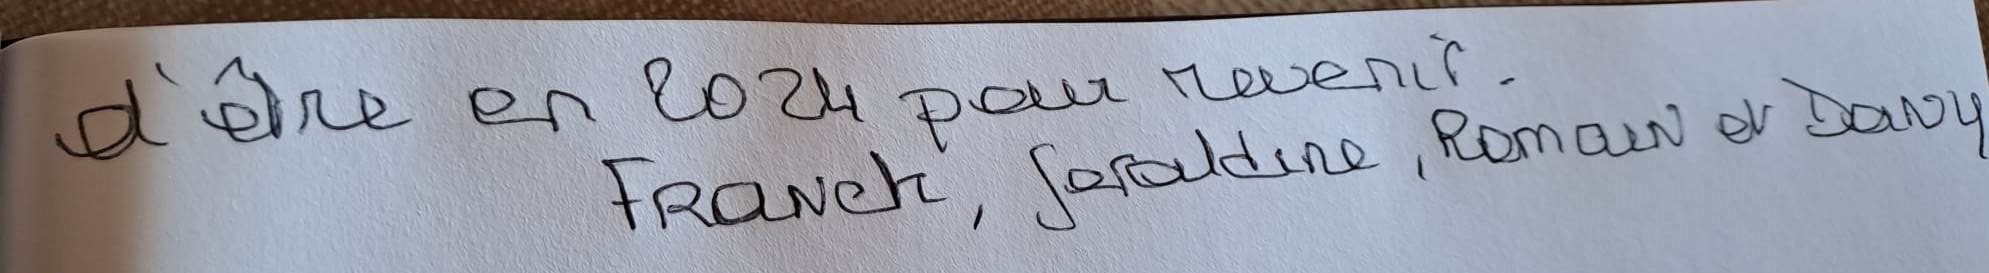 d'être en 2024 pour revenir.
Franck, Géraldine, Romain et Davy